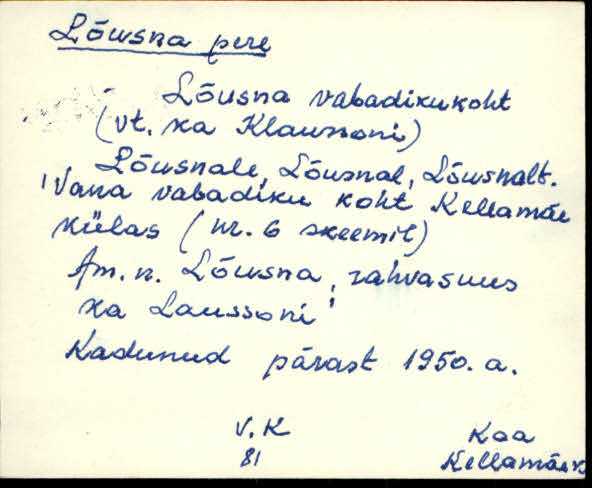 Lõusna pere
Lõusna vabadikukoht
(vt. ka Klaussoni)
Lõusnale, Lõusnal, Lõusnalt.
'Vana vabadiku koht Kellamäe
külas (nr. 6 skeemil)
Am. n. Lõusna, rahvasuus
ka Laussoni'
Kadunud pärast 1950. a.
V. K
81
Kaa
Kellamäe k